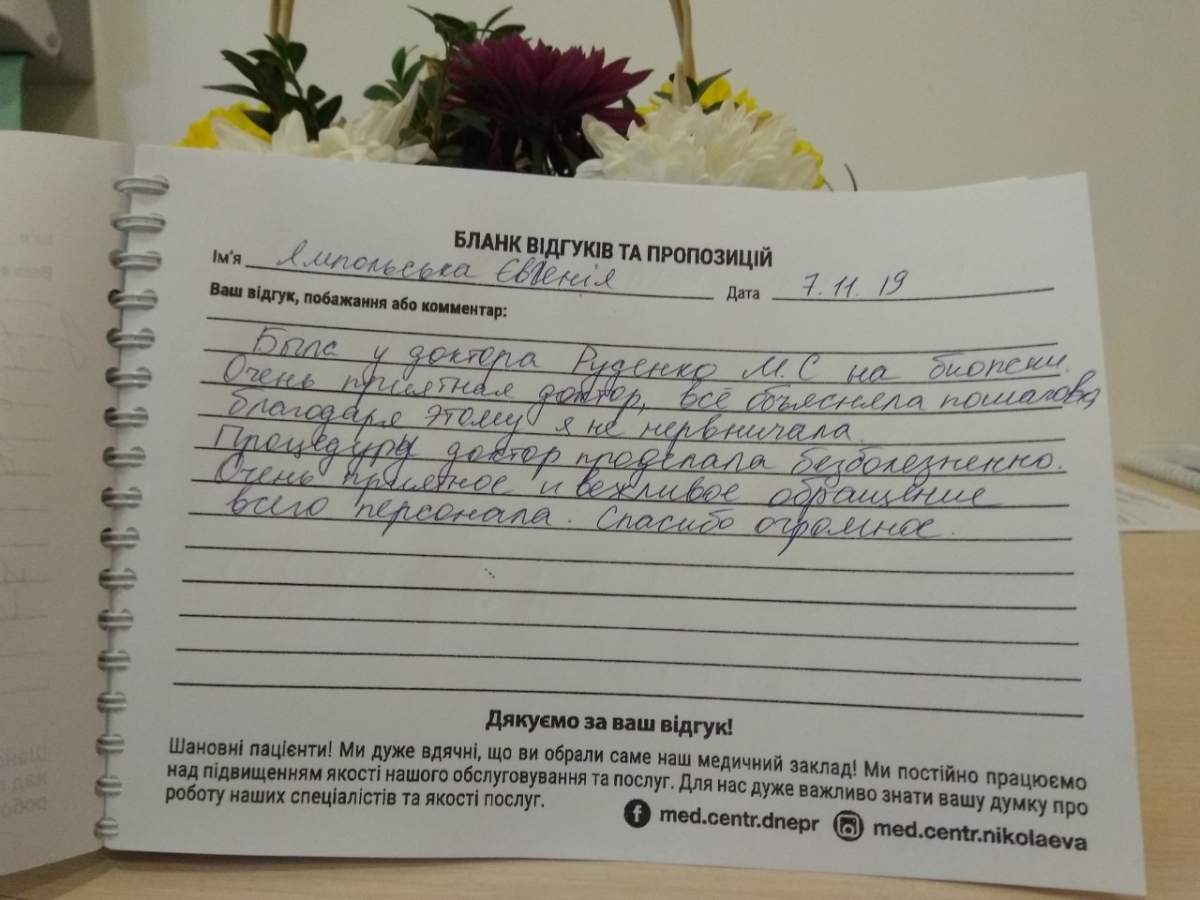 БЛАНК ВІДГУКІВ ТА ПРОПОЗИЦІЙ
Ім'я Ямпольська Євгенія Дата 7.11.19
Ваш відгук, побажання або комментар:
Была у доктора Руденко М.С на биопсии.
Очень приятная доктор, всё объясняла пошагово,
благодаря этому я не нервничала.
Процедуру доктор проделала безболезненно.
Очень приятное и вежливое обращение
всего персонала. Спасибо огромное.
Дякуємо за ваш відгук!
Шановні пацієнти! Ми дуже вдячні, що ви обрали саме наш медичний заклад! Ми постійно працюємо
над підвищенням якості нашого обслуговування та послуг. Для нас дуже важливо знати вашу думку про
роботу наших спеціалістів та якості послуг.
med.centr.dnepr med.centr.nikolaeva